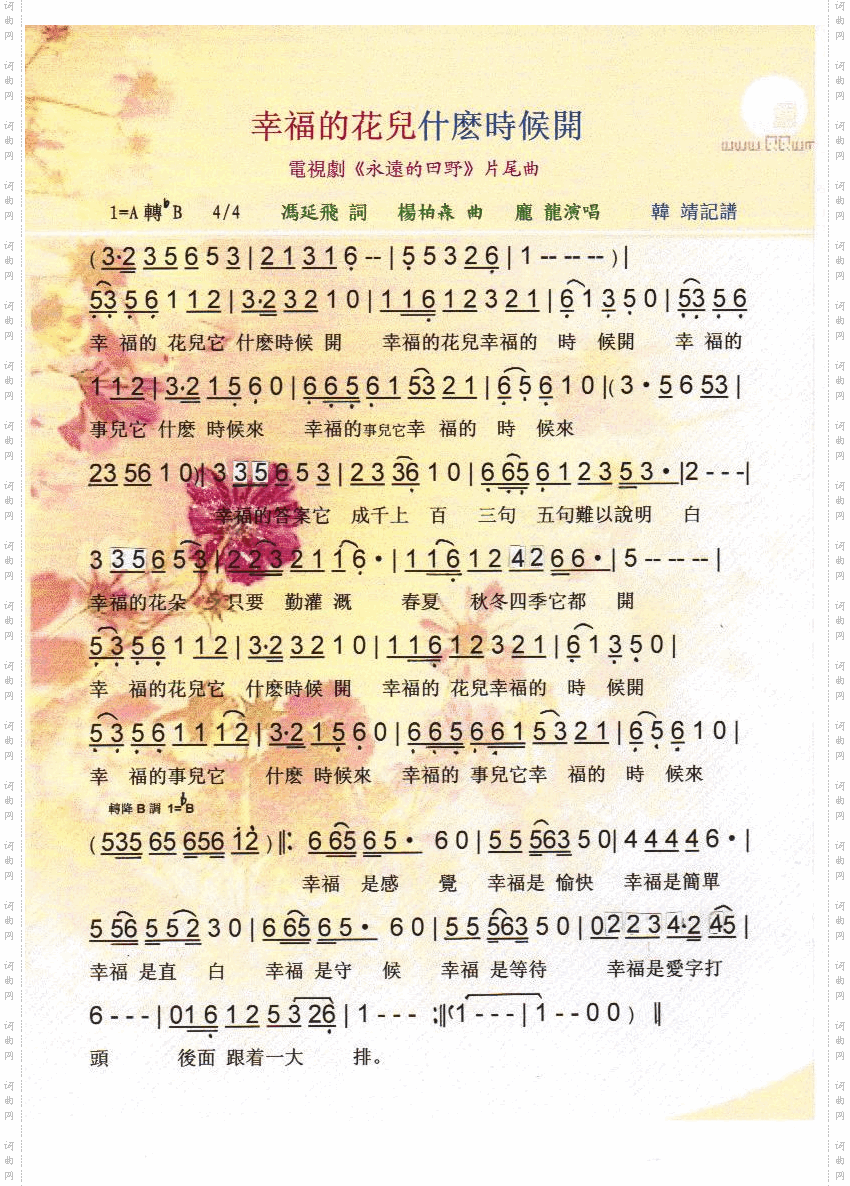 幸福的花兒什麽時候開
電視劇《永遠的田野》片尾曲
1=A 轉♭B 4/4 馮延飛 詞 楊柏森 曲 龐 龍演唱 韓 靖記譜
( 3·2 3 5 6 5 3 | 2 1 3 1 6 -- | 5 5 3 2 6 | 1 -- -- -- ) |
53 5 6 1 1 2 | 3·2 3 2 1 0 | 1 1 6 1 2 3 2 1 | 6 1 3 5 0 | 53 5 6
幸 福的 花兒它 什麽時候 開 幸福的花兒幸福的 時 候開 幸 福的
1 1 2 | 3·2 1 5 6 0 | 6 6 5 6 1 53 2 1 | 6 5 6 1 0 |( 3 · 5 6 53 |
事兒它 什麽 時候來 幸福的事兒它幸 福的 時 候來
23 56 1 0 )| 3 3 5 6 5 3 | 2 3 36 1 0 | 6 65 6 1 2 3 5 3 · |2 - - -|
幸福的答案它 成千上 百 三句 五句難以說明 白
3 3 5 6 5 3 | 2 2 3 2 1 1 6 · | 1 1 6 1 2 4 2 6 6 · | 5 -- -- -- |
幸福的花朵 只要 勤灌 溉 春夏 秋冬四季它都 開
5 3 5 6 1 1 2 | 3·2 3 2 1 0 | 1 1 6 1 2 3 2 1 | 6 1 3 5 0 |
幸 福的花兒它 什麽時候 開 幸福的 花兒幸福的 時 候開
5 3 5 6 1 1 1 2 | 3·2 1 5 6 0 | 6 6 5 6 6 1 5 3 2 1 | 6 5 6 1 0 |
幸 福的事兒它 什麽 時候來 幸福的 事兒它幸 福的 時 候來
轉降 B 調 1=♭B
( 535 65 656 12 ) ‖: 6 65 6 5 · 6 0 | 5 5 563 5 0| 4 4 4 4 6 · |
幸福 是感 覺 幸福是 愉快 幸福是簡單
5 56 5 5 2 3 0 | 6 65 6 5 · 6 0 | 5 5 563 5 0 | 0 2 2 3 4·2 45 |
幸福 是直 白 幸福 是守 候 幸福 是等待 幸福是愛字打
6 - - - | 01 6 1 2 5 3 26 | 1 - - - :‖( 1 - - - | 1 - - 0 0 ) ‖
頭 後面 跟着一大 排。